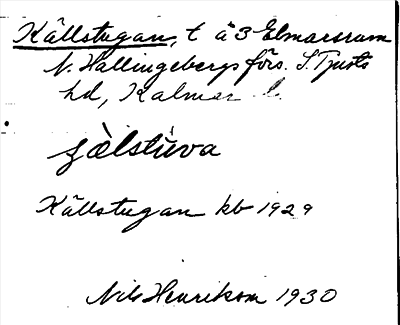 Källstugan, t å 3 Elmarsrum
N. Hallingebergs förs. S. Tjusts
hd, Kalmar l.
çàlstùva
Källstugan kb 1929
Nils Henrikson 1930